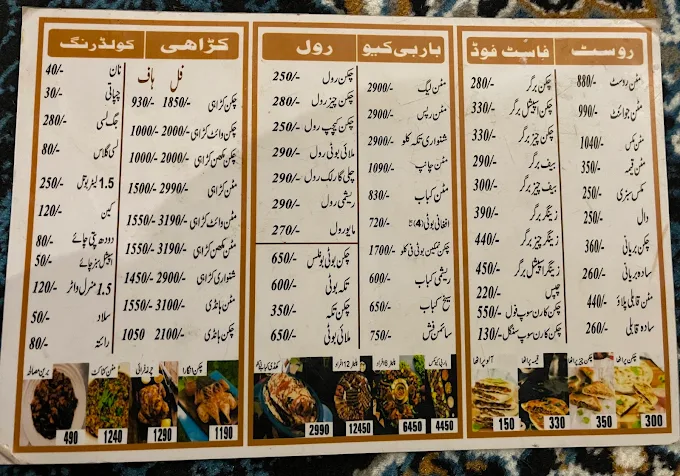 روسٹ
مٹن روسٹ 880/-
مٹن جوائنٹ 990/-
مٹن مکس 1040/-
مٹن قیمہ 350/-
مکس سبزی 250/-
دال 250/-
چکن بریانی 360/-
سادہ بریانی 260/-
مٹن قابلی پلاؤ 440/-
سادہ قابلی 260/-
فاسٹ فوڈ
چکن برگر 280/-
چکن اسپیشل برگر 330/-
چکن چیز برگر 330/-
بیف برگر 290/-
بیف چیز برگر 300/-
زینگر برگر 390/-
زینگر چیز برگر 440/-
زینگر اسپیشل برگر 450/-
چپس 220/-
چکن کارن سوپ فول 550/-
چکن کارن سوپ سنگل 130/-
چکن پراٹھا 300
چکن چیز پراٹھا 350
قیمہ پراٹھا 330
آلو پراٹھا 150
باربی کیو
مٹن لیگ 2900/-
مٹن رپس 2900/-
شنواری تکہ کلو 2900/-
مٹن چانپ 1090/-
مٹن کباب 830/-
افغانی بوٹی (4) 720/-
چکن نمکین بوٹی فی کلو 1700/-
ریشمی کباب 600/-
سیخ کباب 650/-
سائمن فش 750/-
رول
چکن رول 250/-
چکن چیز رول 280/-
چکن کیچپ رول 250/-
ملائی بوٹی رول 290/-
چلی گارلک رول 290/-
ریشمی رول 290/-
مایو رول 270/-
چکن بوٹی بونلس 650/-
تکہ بوٹی 600/-
چکن تکہ 350/-
ملائی بوٹی 650/-
4450
پلیٹر 8 افراد 6450
پلیٹر 12 افراد 12450
2990
کڑاھی
فل ہاف
چکن کڑاہی 1850/- 930/-
چکن وائٹ کڑاہی 2000/- 1000/-
چکن مکھن کڑاہی 2000/- 1000/-
مٹن کڑاہی 2990/- 1500/-
مٹن وائٹ کڑاہی 3190/- 1550/-
مٹن مکھن کڑاہی 3190/- 1550/-
شنواری کڑاہی 2900/- 1450/-
مٹن ہانڈی 3100/- 1550/-
چکن ہانڈی 2100/- 1050
کولڈرنگ
نان 40/-
چپاتی 30/-
جگ لسی 280/-
لسی گلاس 80/-
1.5 لیٹر بوتل 250/-
کین 120/-
دودھ پتی چائے 80/-
اسپیشل سبز چائے 50/-
1.5 منرل واٹر 120/-
سلاد 50/-
رائتہ 80/-
چکن انگارا 1190
چرغہ فرائی 1290
مٹن کٹاکٹ 1240
برین مصالحہ 490